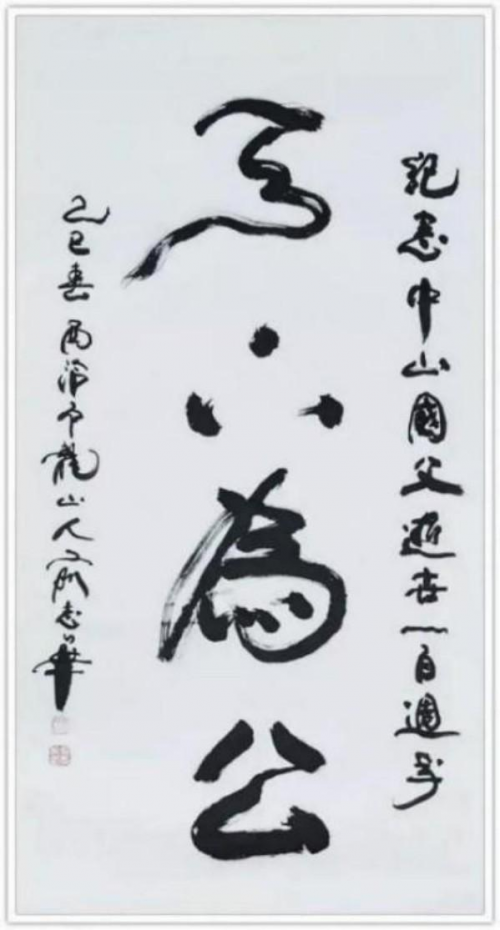 紀念中山國父逝世一百週年
天下為公
乙巳春西泠龍山人志華